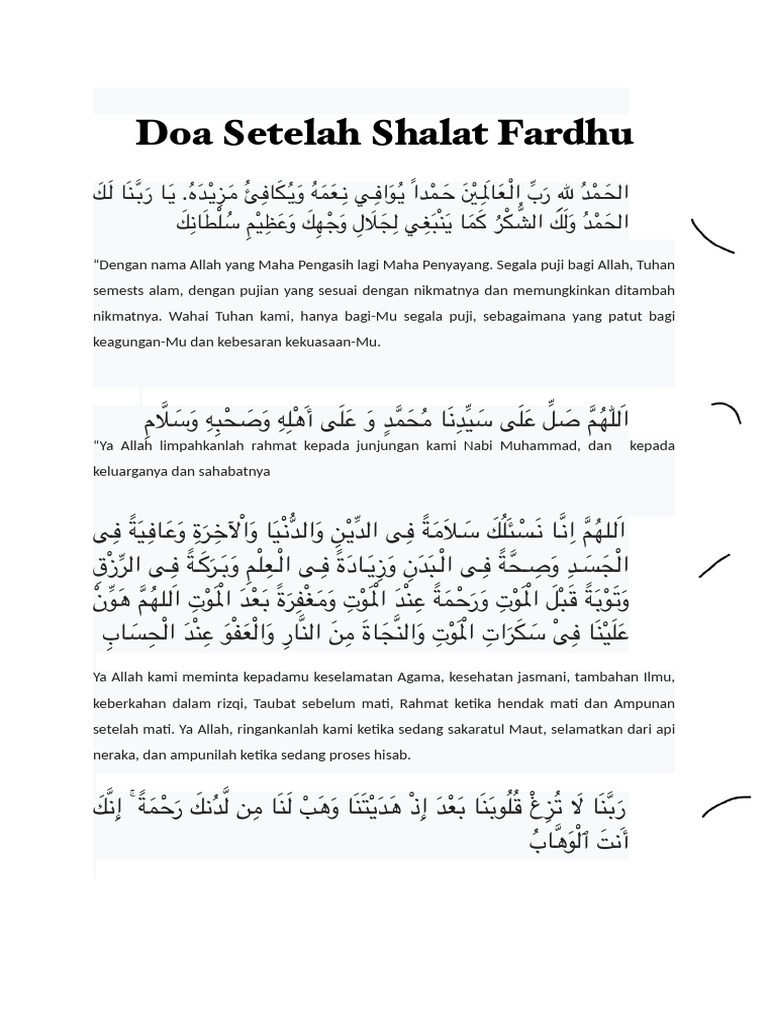 Doa Setelah Shalat Fardhu
الحَمْدُ لله رَبِّ الْعَالَمِيْنَ حَمْداً يُوَافِي نِعَمَهُ وَيُكَافِئُ مَزِيْدَهُ. يَا رَبَّنَا لَكَ
الحَمْدُ وَلَكَ الشُّكْرُ كَمَا يَنْبَغِي لِجَلَالِ وَجْهِكَ وَعَظِيْمِ سُلْطَانِكَ
“Dengan nama Allah yang Maha Pengasih lagi Maha Penyayang. Segala puji bagi Allah, Tuhan
semests alam, dengan pujian yang sesuai dengan nikmatnya dan memungkinkan ditambah
nikmatnya. Wahai Tuhan kami, hanya bagi-Mu segala puji, sebagaimana yang patut bagi
keagungan-Mu dan kebesaran kekuasaan-Mu.
اَللّٰهُمَّ صَلِّ عَلَى سَيِّدِنَا مُحَمَّدٍ وَ عَلَى أَهْلِهِ وَصَحْبِهِ وَسَلَّامِ
“Ya Allah limpahkanlah rahmat kepada junjungan kami Nabi Muhammad, dan kepada
keluarganya dan sahabatnya
اَللهُمَّ اِنَّا نَسْئَلُكَ سَلَامَةً فِى الدِّيْنِ وَالدُّنْيَا وَالْآخِرَةِ وَعَافِيَةً فِى
الْجَسَدِ وَصِحَّةً فِى الْبَدَنِ وَزِيَادَةً فِى الْعِلْمِ وَبَرَكَةً فِى الرِّزْقِ
وَتَوْبَةً قَبْلَ الْمَوْتِ وَرَحْمَةً عِنْدَ الْمَوْتِ وَمَغْفِرَةً بَعْدَ الْمَوْتِ اَللهُمَّ هَوِّنْ
عَلَيْنَا فِىْ سَكَرَاتِ الْمَوْتِ وَالنَّجَاةَ مِنَ النَّارِ وَالْعَفْوَ عِنْدَ الْحِسَابِ
Ya Allah kami meminta kepadamu keselamatan Agama, kesehatan jasmani, tambahan Ilmu,
keberkahan dalam rizqi, Taubat sebelum mati, Rahmat ketika hendak mati dan Ampunan
setelah mati. Ya Allah, ringankanlah kami ketika sedang sakaratul Maut, selamatkan dari api
neraka, dan ampunilah ketika sedang proses hisab.
رَبَّنَا لَا تُزِغْ قُلُوبَنَا بَعْدَ إِذْ هَدَيْتَنَا وَهَبْ لَنَا مِن لَّدُنكَ رَحْمَةً ۚ إِنَّكَ
أَنتَ ٱلْوَهَّابُ